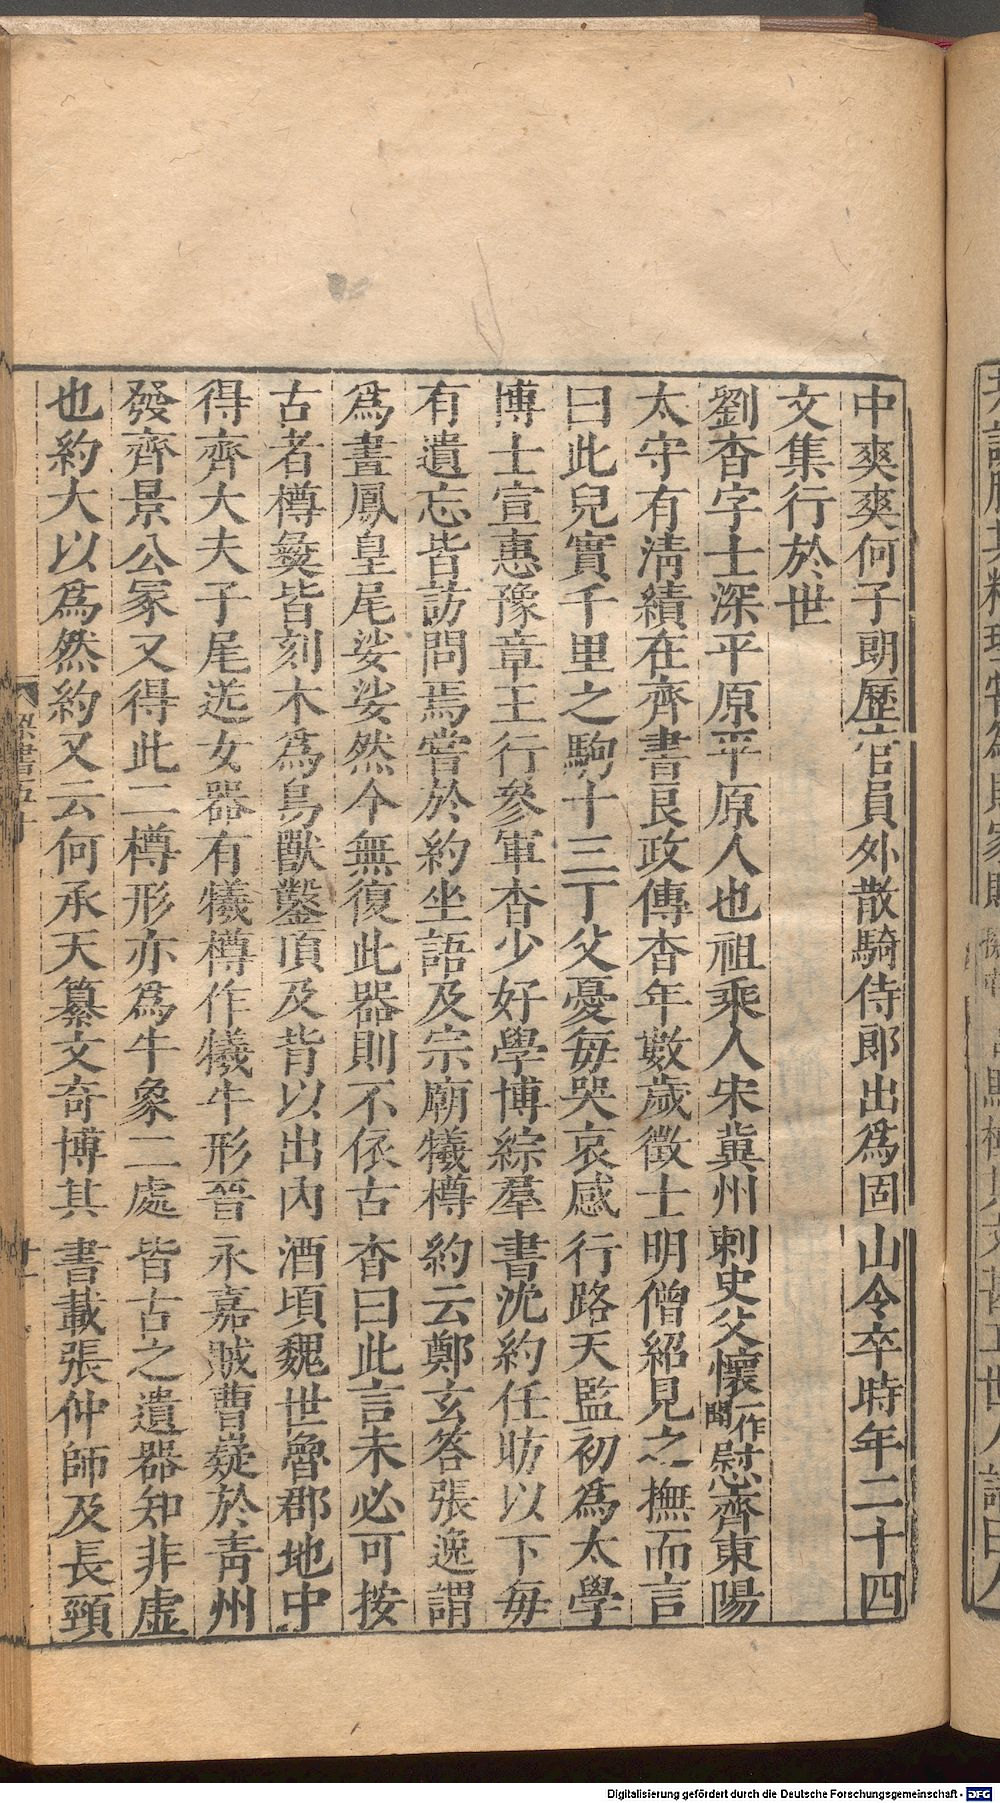 中爽爽何子朗歷官員外散騎侍郎出爲固山令卒時年二十四
文集行於世
劉杳字士深平原平原人也祖乘人宋冀州刺史父懷一作聞慰齊東陽
太守有淸績在齊書良政傳杳年數歲徵士明僧紹見之撫而言
曰此兒實千里之駒十三丁父憂每哭哀感行路天監初爲太學
博士宣惠豫章王行參軍杳少好學博綜羣書沈約任昉以下每
有遺忘皆訪問焉嘗於約坐語及宗廟犧樽約云鄭玄答張逸謂
爲畫鳳皇尾娑娑然今無復此器則不依古杳曰此言未必可按
古者樽彝皆刻木爲鳥獸鑿頂及背以出內酒頃魏世魯郡地中
得齊大夫子尾送女器有犧樽作犧牛形晉永嘉賊曹嶷於靑州
發齊景公冢又得此二樽形亦爲牛象二處皆古之遺器知非虛
也約大以爲然約又云何承天纂文奇博其書載張仲師及長頸
Digitalisierung gefördert durch die Deutsche Forschungsgemeinschaft - DFG